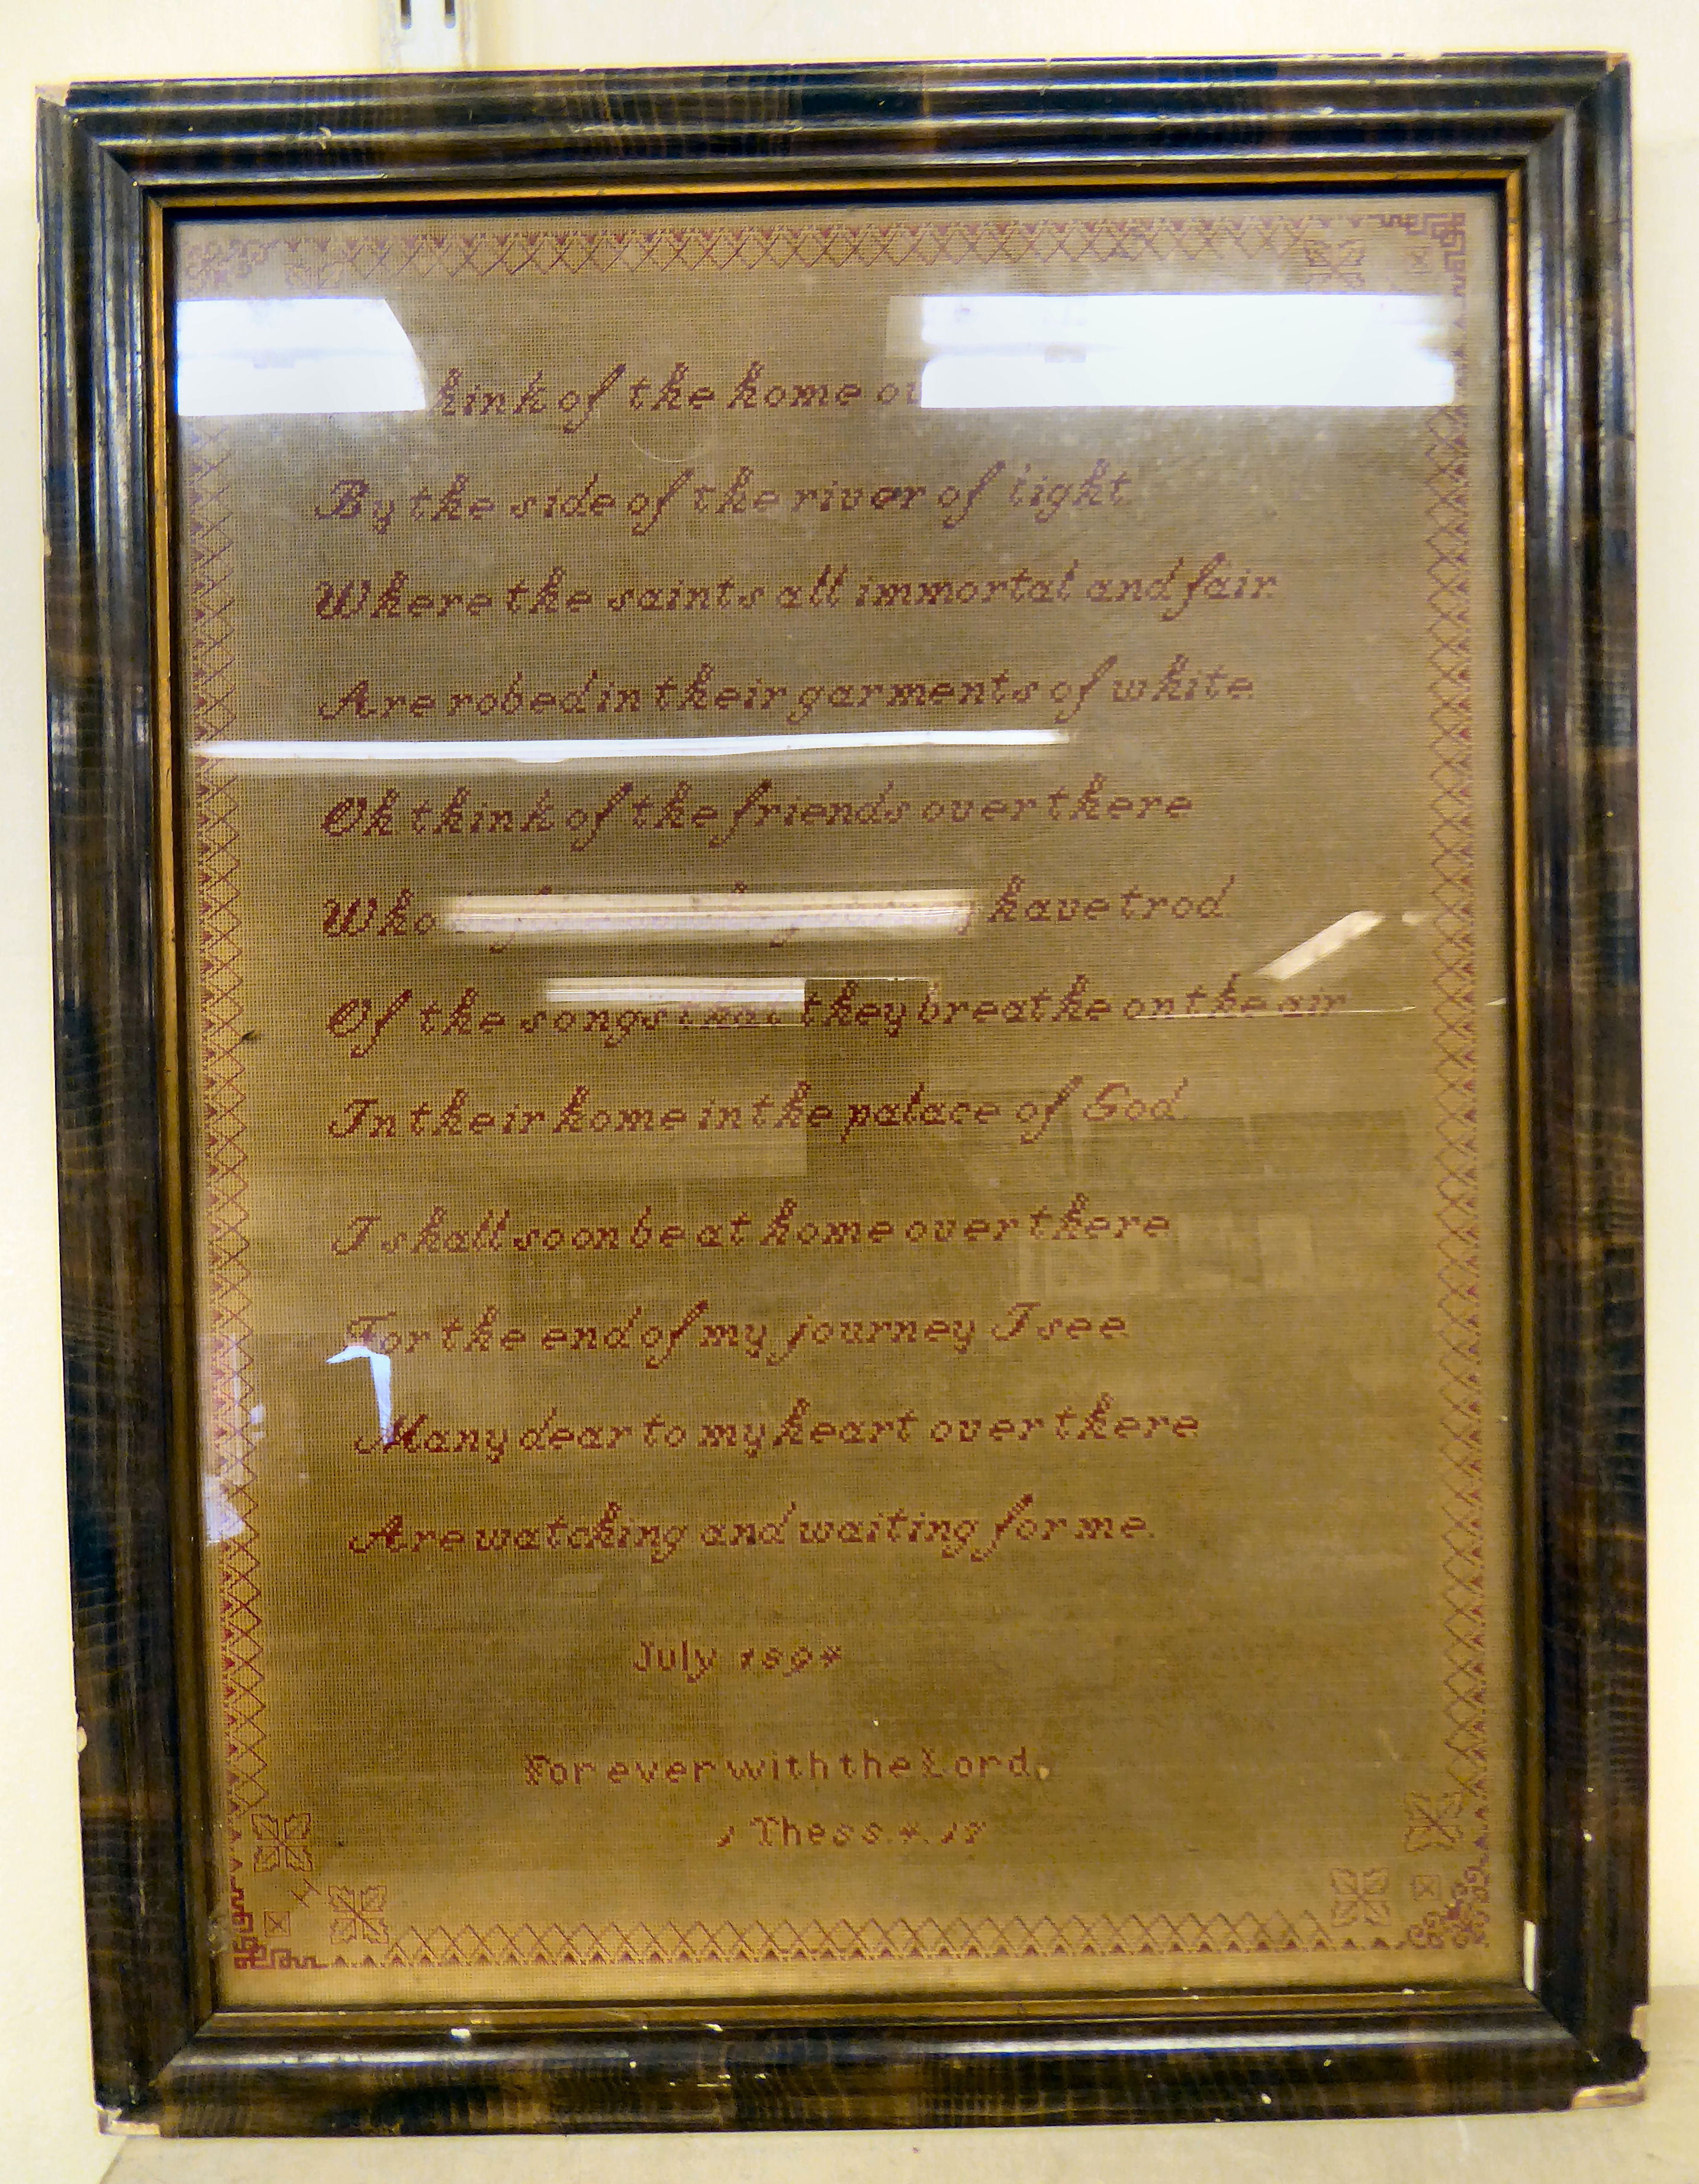 think of the home
By the side of the river of light
Where the saints all immortal and fair
Are robed in their garments of white
Oh think of the friends over there
Who have trod
Of the songs they breathe on the air
In their home in the palace of God
I shall soon be at home over there
For the end of my journey I see
Many dear to my heart over there
Are watching and waiting for me.
July 189*
Forever with the Lord.
1 Thess. * . 18